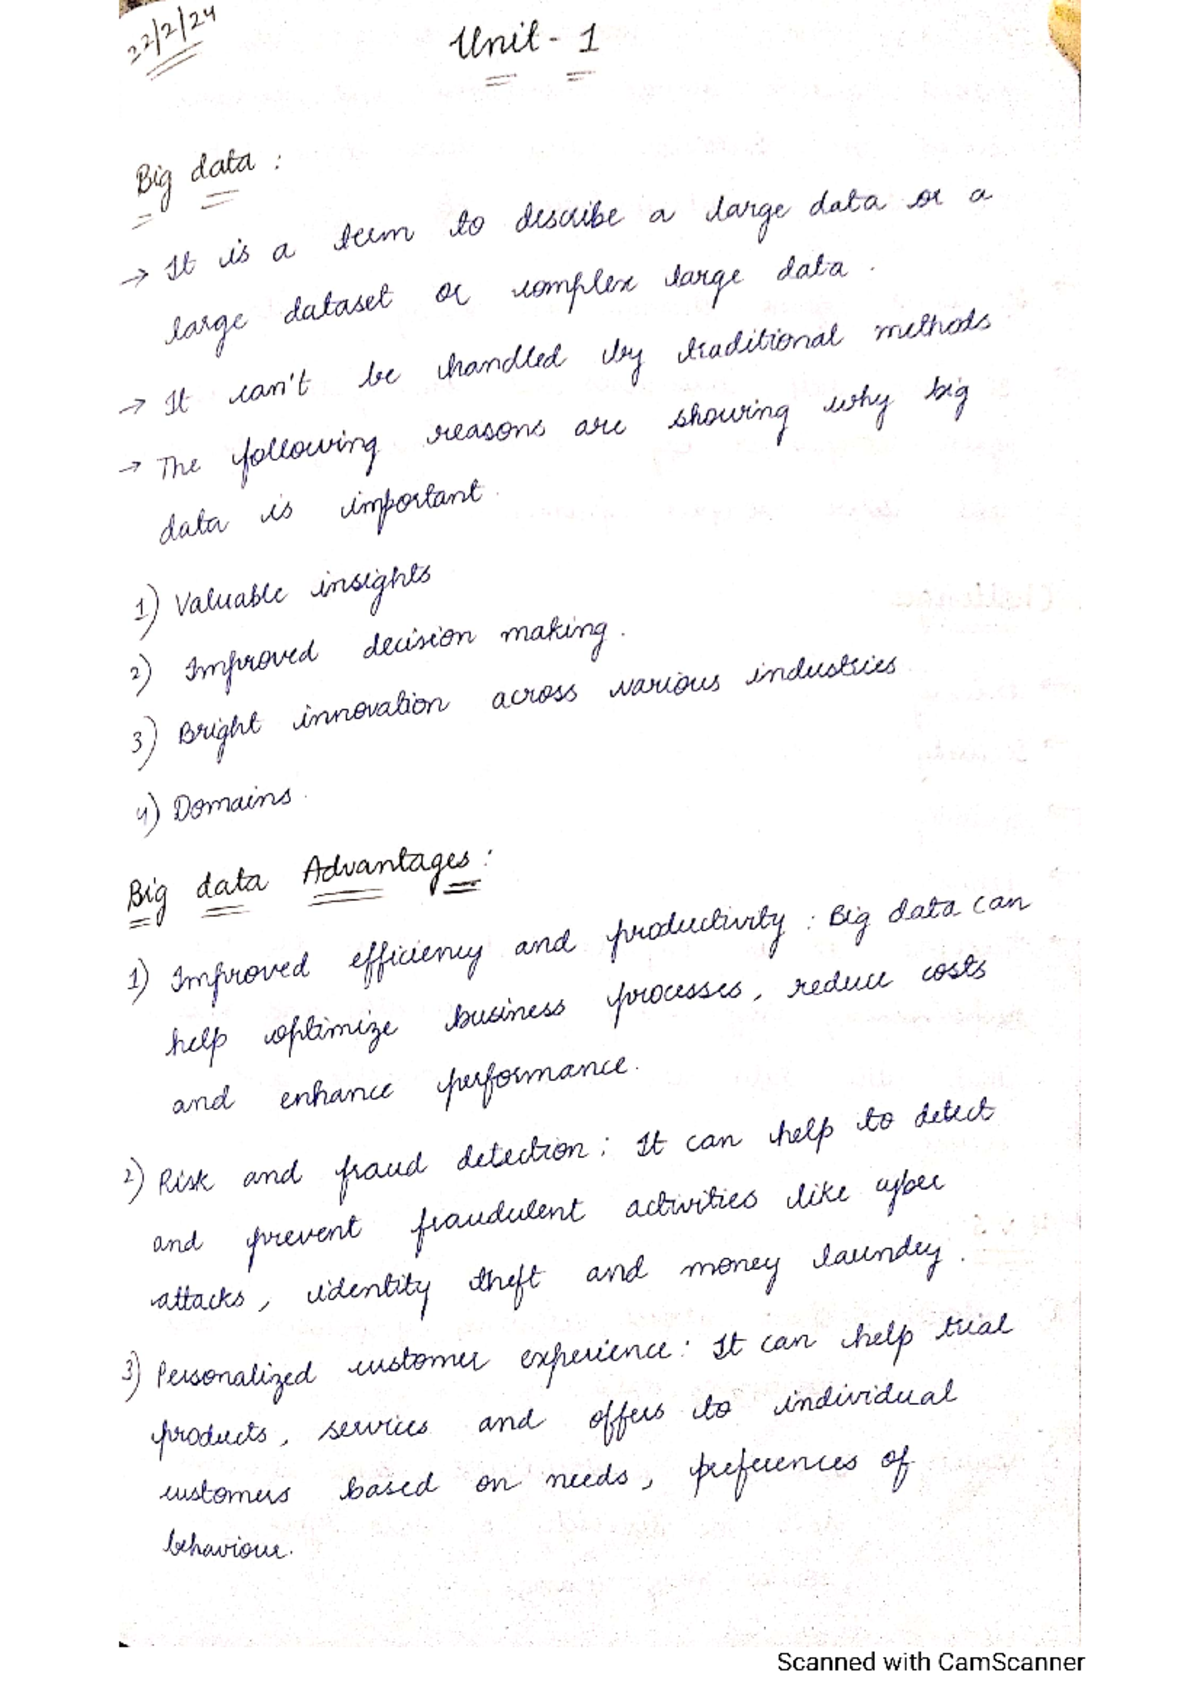 22/2/24
Unit - 1
Big data :
→ It is a term to describe a large data or a
large dataset or complex large data.
→ It can't be handled by traditional methods
→ The following reasons are showing why big
data is important.
1) Valuable insights
2) Improved decision making.
3) Bright innovation across various industries
4) Domains.
Big data Advantages :
1) Improved efficiency and productivity : Big data can
help optimize business processes, reduce costs
and enhance performance.
2) Risk and fraud detection : It can help to detect
and prevent fraudulent activities like cyber
attacks, identity theft and money laundry.
3) Personalized customer experience : It can help trial
products, services and offers to individual
customers based on needs, preferences of
behaviour.
Scanned with CamScanner